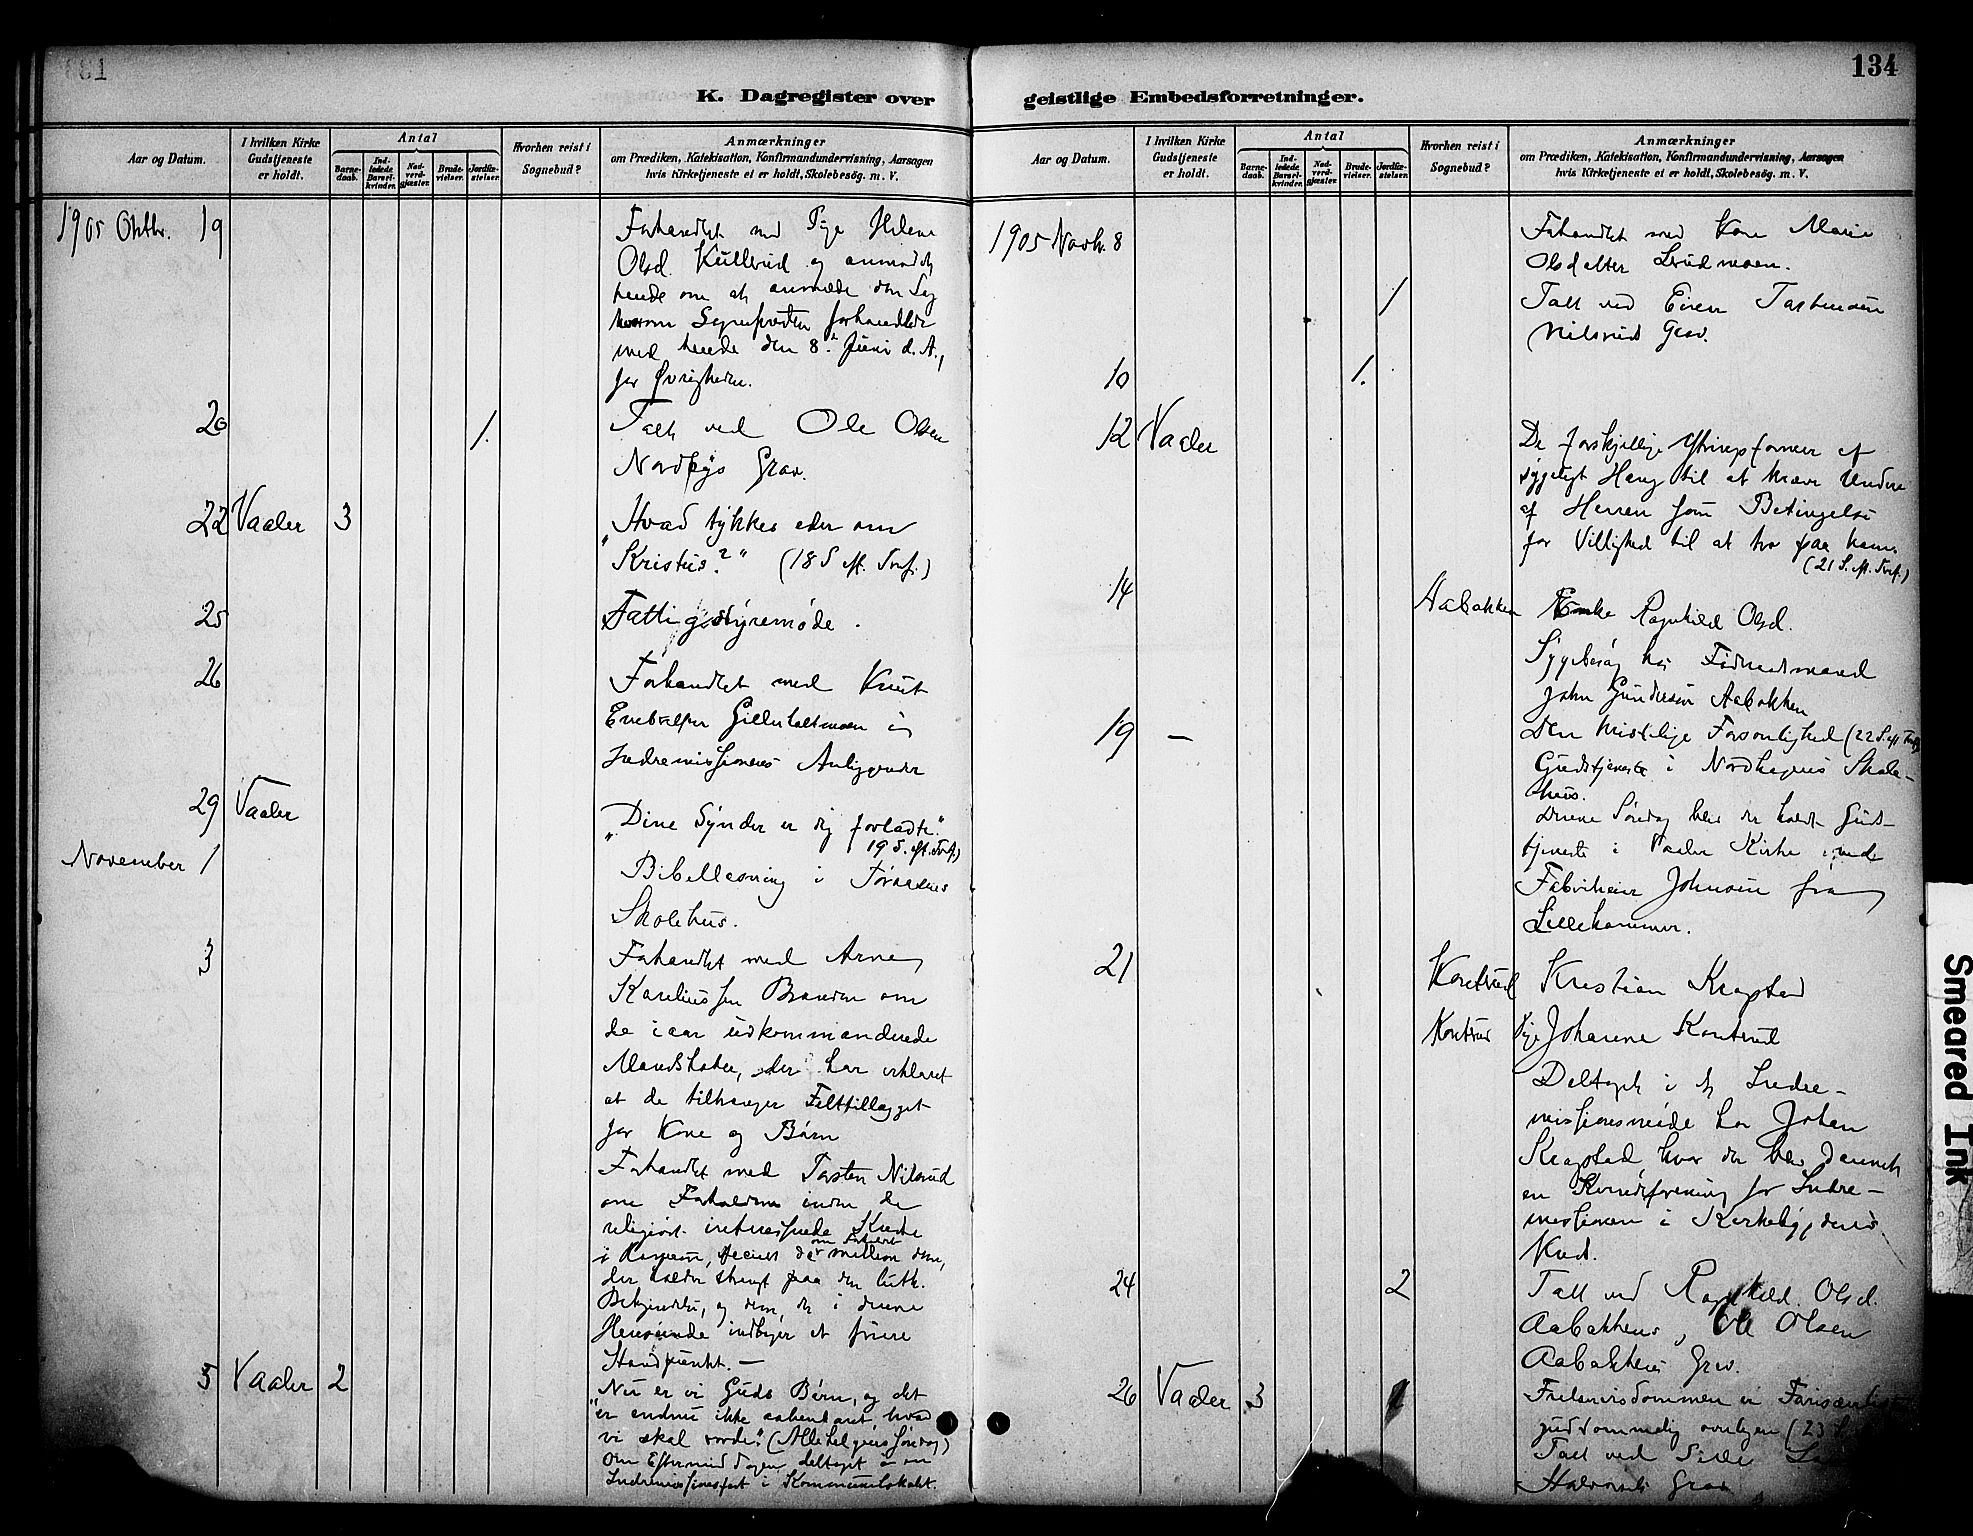 134
K. Dagregister over
geistlige Embedsforretninger.
Aar og Datum.
I hvilken Kirke
Gudstjeneste
er holdt.
Antal
Barne-
daab.
Ind-
ledede
Barsel-
kvinder.
Nad-
verd-
gjæster.
Brude-
vielser.
Jordfæ-
stelser.
Hvorhen reist i
Sognebud?
Anmærkninger
om Prædiken, Katekisation, Konfirmandundervisning, Aarsagen
hvis Kirketjeneste ei er holdt, Skolebesög. m. V.
1905 Oktbr. 19
Forhandlet med Pige Helene
Olsd. Kullerud og anmodet
hende om at anmelde den Sag
hvorom Sognepresten forhandlede
med hende den 8. Juni d. A.,
for Øvrigheden.
20
1.
Talt ved Ole Olsen
Nordbys Grav.
22 Vaaler 3
"Hvad tykkes eder om
Kristus?" (18 S. eft. Tref.)
25
Fattigstyremøde.
26
Forhandlet med Knut
Gillerholtmoen i
Indremissionens Anliggender
29 Vaaler
"Dine Synder er dig forladte."
19 S. eft. Tref.)
November 1
Bibellæsning i
Skolehus.
3
Forhandlet med Arne
Kareliussen Branden om
de i aar udkommanderede
Mandskaber, der har erklæret
at de tiltrænger Felttillægget
for Kone og Børn
Forhandlet med Torsten Nilsrud
om Forholdene inden de
religiøst interesserede Kredse
om Forholdet
mellem dem,
der holder strengt paa den luth.
Bekjendelse, og dem, der i denne
Henseende indtager et friere
Standpunkt. —
5 Vaaler 2
"Nu er vi Guds Børn, og det
er endnu ikke aabenbaret, hvad
vi skal vorde." (Allehelgens Søndag)
Om Eftermiddagen deltaget i en
Indremissionsfest i Kommunelokalet.
Aar og Datum.
I hvilken Kirke
Gudstjeneste
er holdt.
Antal
Barne-
daab.
Ind-
ledede
Barsel-
kvinder.
Nad-
verd-
gjæster.
Brude-
vielser.
Jordfæ-
stelser.
Hvorhen reist i
Sognebud?
Anmærkninger
om Prædiken, Katekisation, Konfirmandundervisning, Aarsagen
hvis Kirketjeneste ei er holdt, Skolebesög. m. V.
1905 Novbr. 8
Forhandlet med Kone Marie
Olsdatter
1
Talt ved
Nilsrud Grav.
10
1.
12 Vaaler
De forskjellige Ytringsformer af
sygeligt Hang til at kræve Undere
af Herren som Betingelse
for Villighed til at tro paa ham.
(21 S. eft. Tref.)
14
Aabakken
Enke Ragnhild Olsd.
Sygebesøg hos
John Gundersen Aabakken
19 —
Den kristelige Forsonlighed (22 S. eft. Tref.)
Gudstjeneste i Nordhagens Skole-
hus.
Denne Søndag blev der holdt Guds-
tjeneste i Vaaler Kirke
Johnsen fra
Lillehammer.
21
Konterud
Kristian Kragstad
Konterud
Pige Johanne Konterud
Deltaget i et Indre-
missionsmøde hos Johan
Kragstad hvor der blev dannet
en Kvindeforening for Indre-
missionen i Kirkebygdens
Kreds.
24
2
Talt ved Ragnhild Olsd.
Aabakkens, Ole Olsen
Aabakkens Grav.
26 Vaaler 3
1
Frelserisdommen er
guddommelig (23 S.
Talt ved
Grav
Smeared Ink